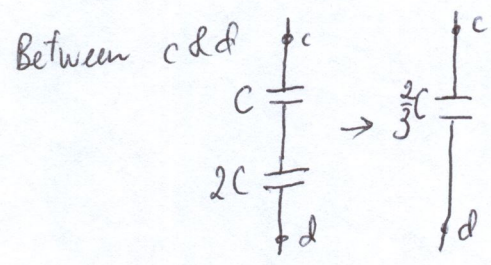 Between c & d
c
C
2C
d
→
c
2/3 C
d